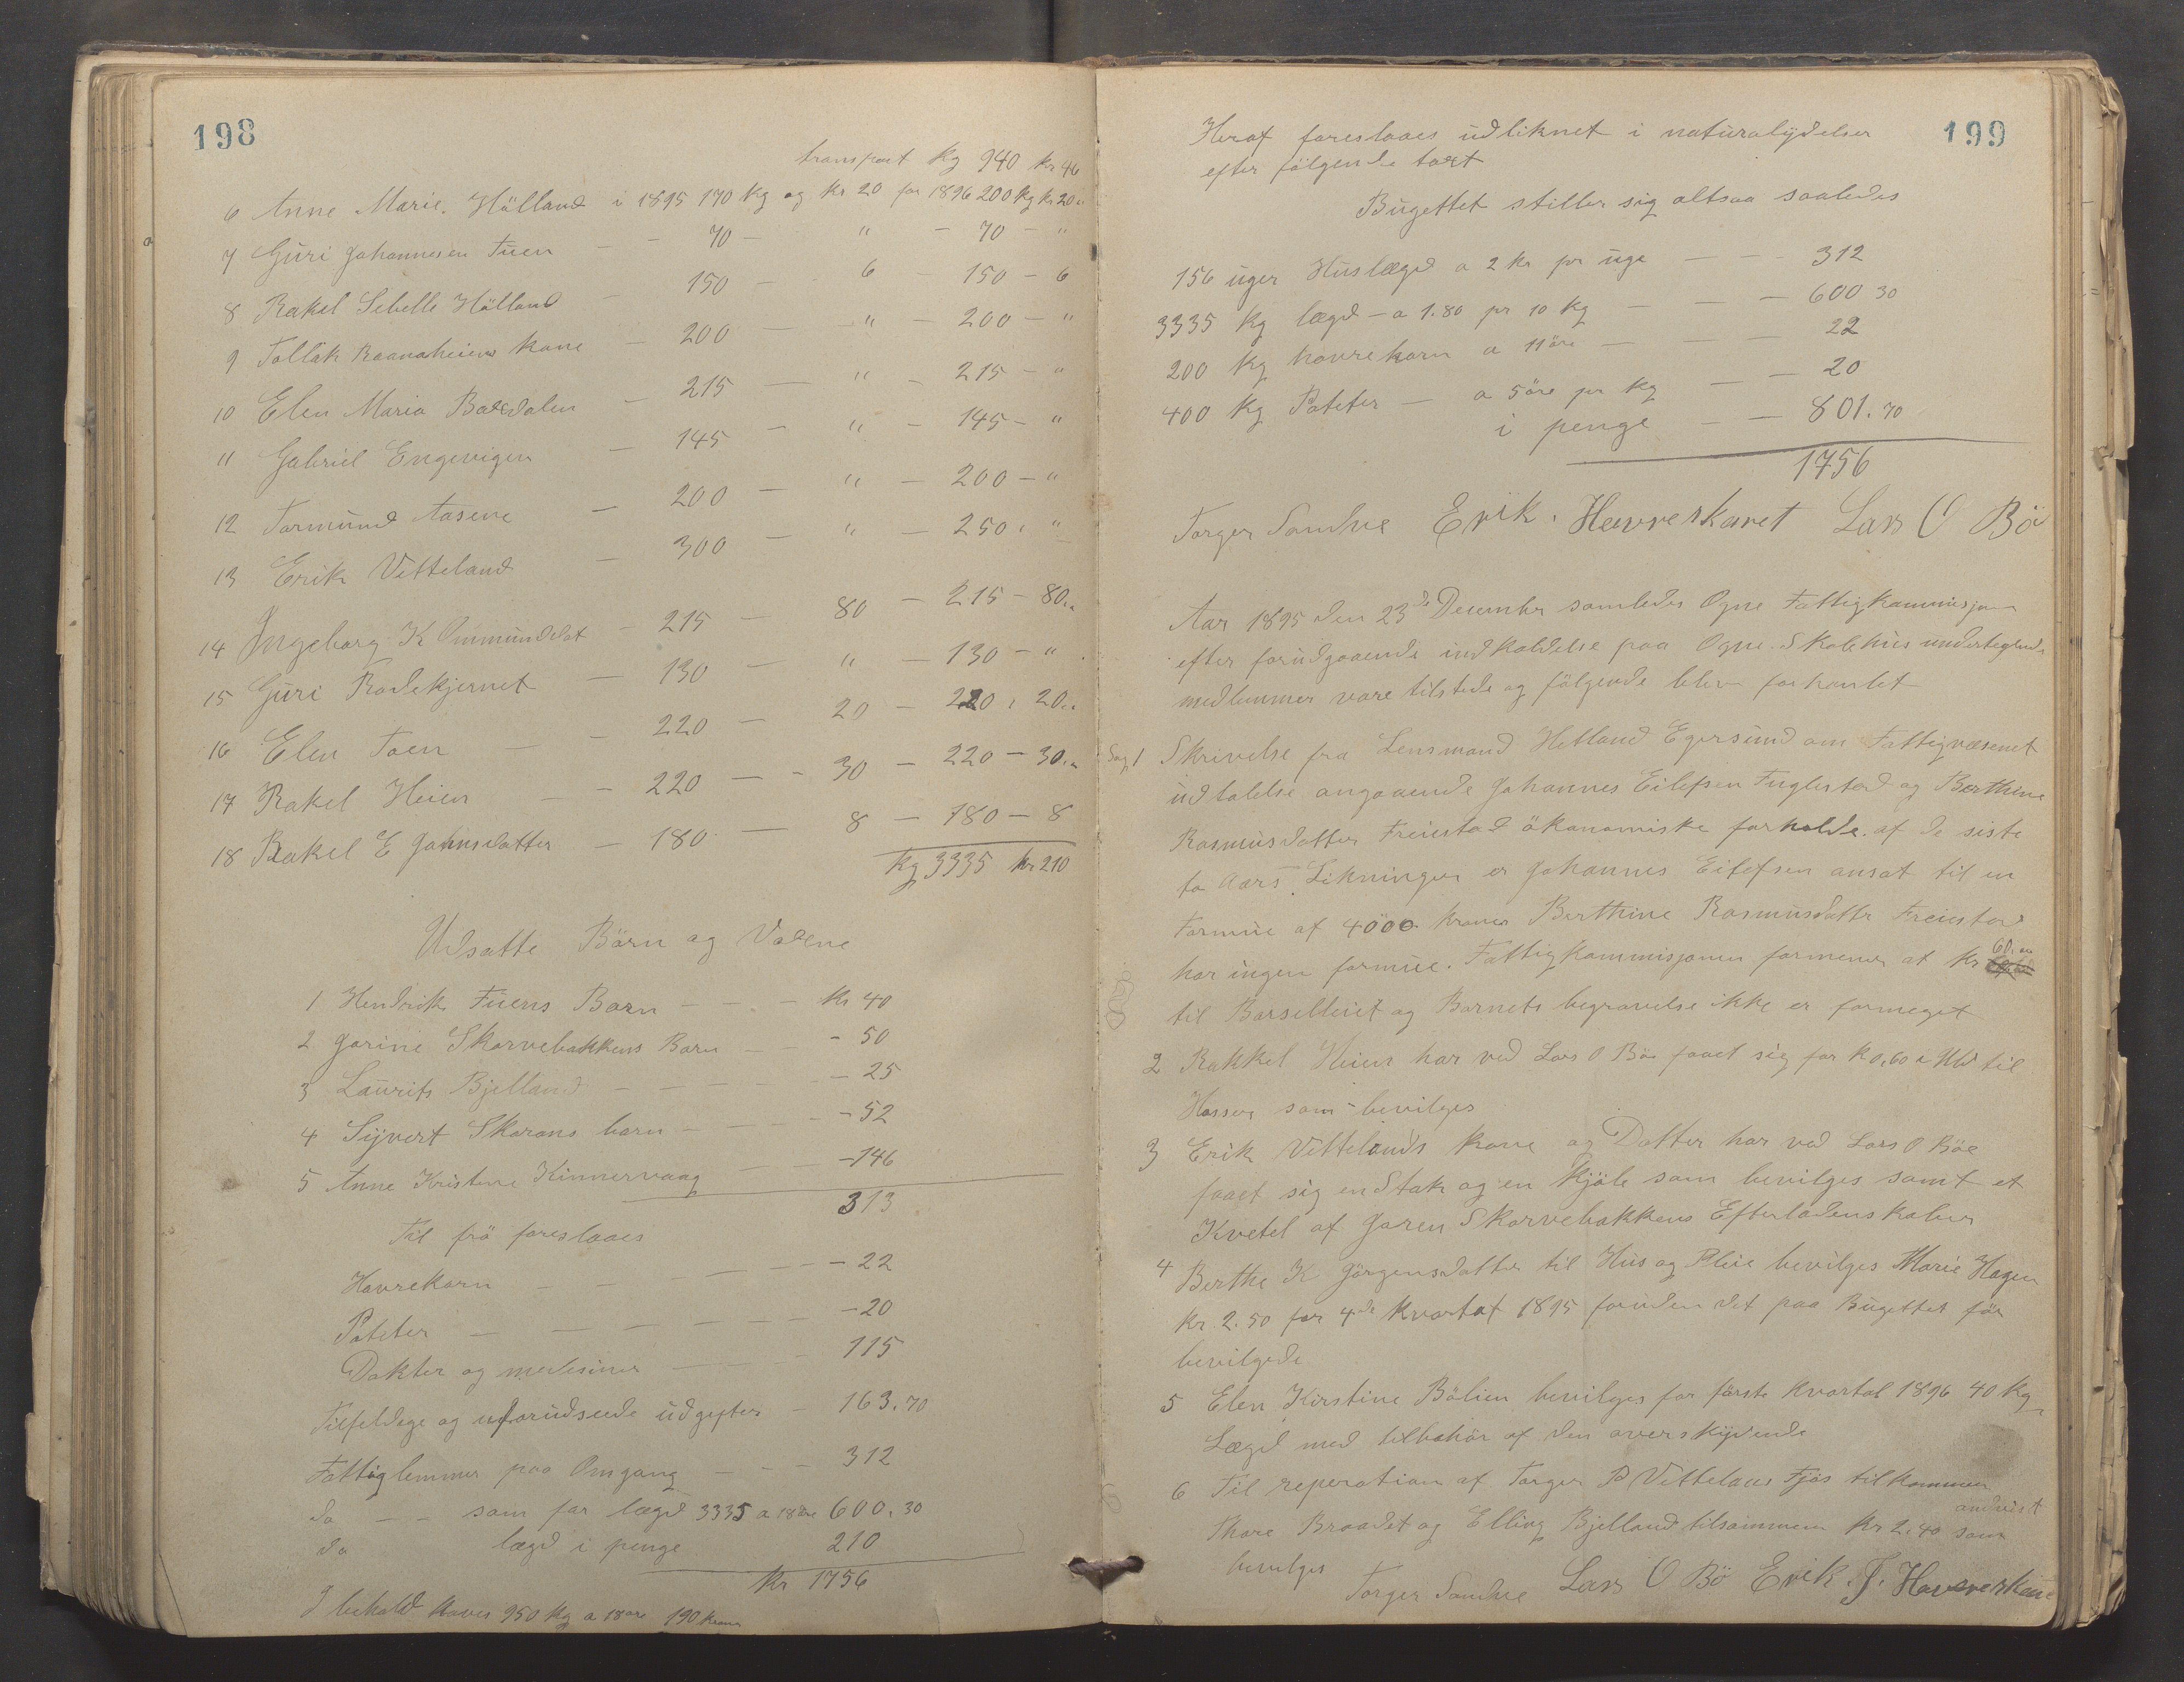 198
transport Kg 940 Kr 46
6 Anne Marie Hålland i 1895 170 Kg og Kr 20 for 1896 200 Kg Kr 20 "
7 Guri Johannesen Tuen — - 70 — " — 70 — "
8 Rakel Sebelle Hålland — 150 — 6 — 150 — 6
9 Tollak Raanaheiens kone — 200 — " — 200 — "
10 Elen Maria Bordalen — 215 — " — 215 — "
11 Gabriel Engevigen — 145 — " — 145 — "
12 Tormund Aasene — 200 — " — 200 — "
13 Erik Vetteland — 300 — " — 250 "
14 Ingeborg K Ommundsdat — 215 — 80 — 215 — 80 "
15 Guri Rodekjernet — 130 — " — 130 — "
16 Elen Toen — - 220 — 20 — 220 , 20 "
17 Rakel Heien — - 220 — - 30 — 220 — 30 "
18 Rakel E Johnsdatter — 180 — 8 — 180 — 8
Kg 3335 Kr 210
Udsatte Börn og Voxne
1 Hendrik Tuens Barn — — — Kr 40
2 Jorine Skarvebakkens Barn — — - 50
3 Laurits Bjelland — — — — 25
4 Syvert Skarans barn — — — — 52
5 Anne Kristine Kinnervaag — — 146
313
Til frö foreslaaes
Havrekorn — — — — — 22
Poteter — — — — — 20
Dokter og medesiner — — — 115
Tilfeldege og uforudseede udgifter — 163.70
Fattiglemmer paa Omgang — — — 312
do — - som far lægd 3335 a 18 öre 600.30
do lægd i penge 210
Kr 1756
I behold haves 950 Kg a 18 öre 190 kroner
199
Heraf foreslaaes udliknet i naturalydelser
efter fölgende taxt
Bugettet stiller sig altsaa saaledes
156 uger Huslægd a 2 kr pr uge — — - 312
3335 Kg lægd — a 1.80 pr 10 Kg — — — 600 30
200 Kg havrekorn a 11 öre — — — 22
400 Kg Poteter — a 5 öre pr Kg — — 20
i penge — — 801.70
1756
Torger Sandve Erik. Havreskaret Lars O Bö
Aar 1895 den 23de December samledes Ogne Fattigkommisjon
efter forudgaaende indkaldelse paa Ogne Skolehus undertegnede
medlemmer vare tilstede og fölgende blev forhanlet
Sag 1 Skrivelse fra Lensmand Hetland Egersund om Fattigvæsenet
udtalelse angaaende Johannes Eilefsen Fuglestad og Berthine
Rasmusdatter Freiestad ökonomiske forholde. af de siste
to Aars Likninger er Johannes Eilefsen ansat til en
Formue af 4000 kroner Berthine Rasmusdatter Freiestad
har ingen formue. Fattigkommisjonen formener at Kr 60.
til Barselleiet og Barnets begravelse ikke er formeget
2 Rakkel Heien har ved Lars O Böe faaet sig for K 0.60 i Uld til
Hosser som bevilges
3 Erik Vettelands kone og Datter har ved Lars O Böe
faaet sig en Stak og en Kjöle som bevilges samt et
Kvetel af Joren Skarvebakkens Efterladenskaber
4 Berthe K Jörgensdatter til Hus og Pleie bevilges Marie Hagen
Kr 2.50 for 4de Kvartal 1895 foruden det paa Bugettet för
bevilgede
5 Elen Kirstine Bölien bevilges for förste Kvartal 1896 40 Kg
Lægd med tilbehör af den overskydende
6 Til reperation af Torger P Vettelans Fjös tilkommer
Thore Braadet og Elling Bjelland tilsammen Kr 2.40 som andvist
bevilges
Torger Sandve Lars O Bö Erik. J. Havreskaret